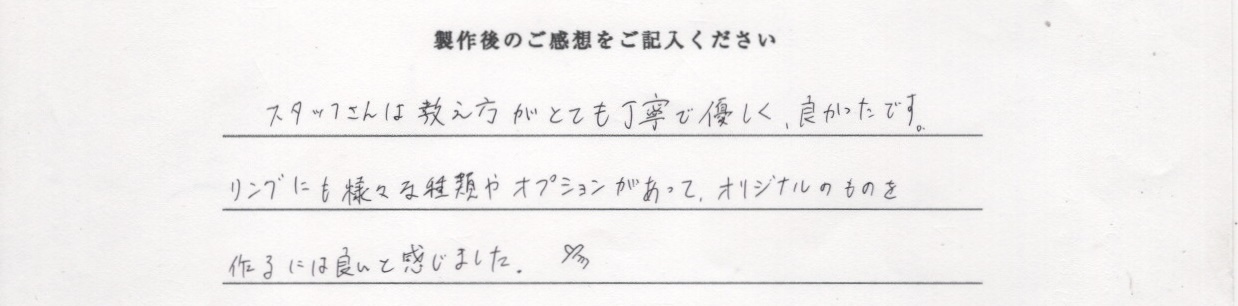 製作後のご感想をご記入ください
スタッフさんは教え方がとても丁寧で優しく、良かったです。
リングにも様々な種類やオプションがあって、オリジナルのものを
作るには良いと感じました。